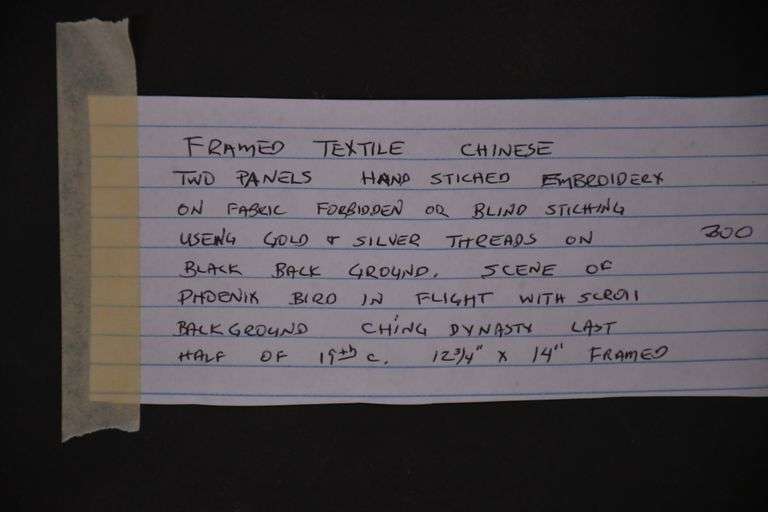 FRAMED TEXTILE CHINESE
TWO PANELS HAND STICHED EMBROIDERY
ON FABRIC FORBIDDEN OR BLIND STICHING
USING GOLD & SILVER THREADS ON 300
BLACK BACK GROUND. SCENE OF
PHOENIX BIRD IN FLIGHT WITH SCROLL
BACKGROUND CHING DYNASTY LAST
HALF OF 19th C. 12 3/4" X 14" FRAMED